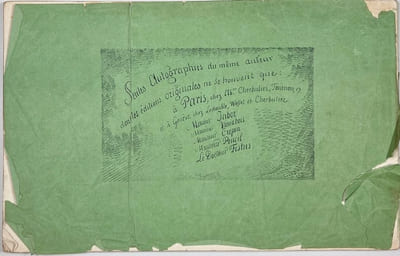 Seules Autographies du même auteur
dont les éditions originales ne se trouvent que:
à Paris, chez MM. Cherbuliez,
et à Genève chez Ledouble, et Cherbuliez
Monsieur Jabot
Monsieur Vieuxbois
Monsieur Crépin
Monsieur Pencil
Le Docteur Festus